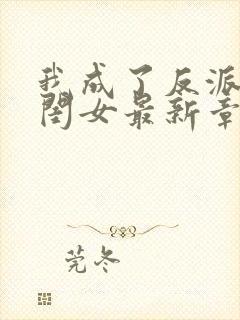 我成了反派
闺女最新章
莞冬